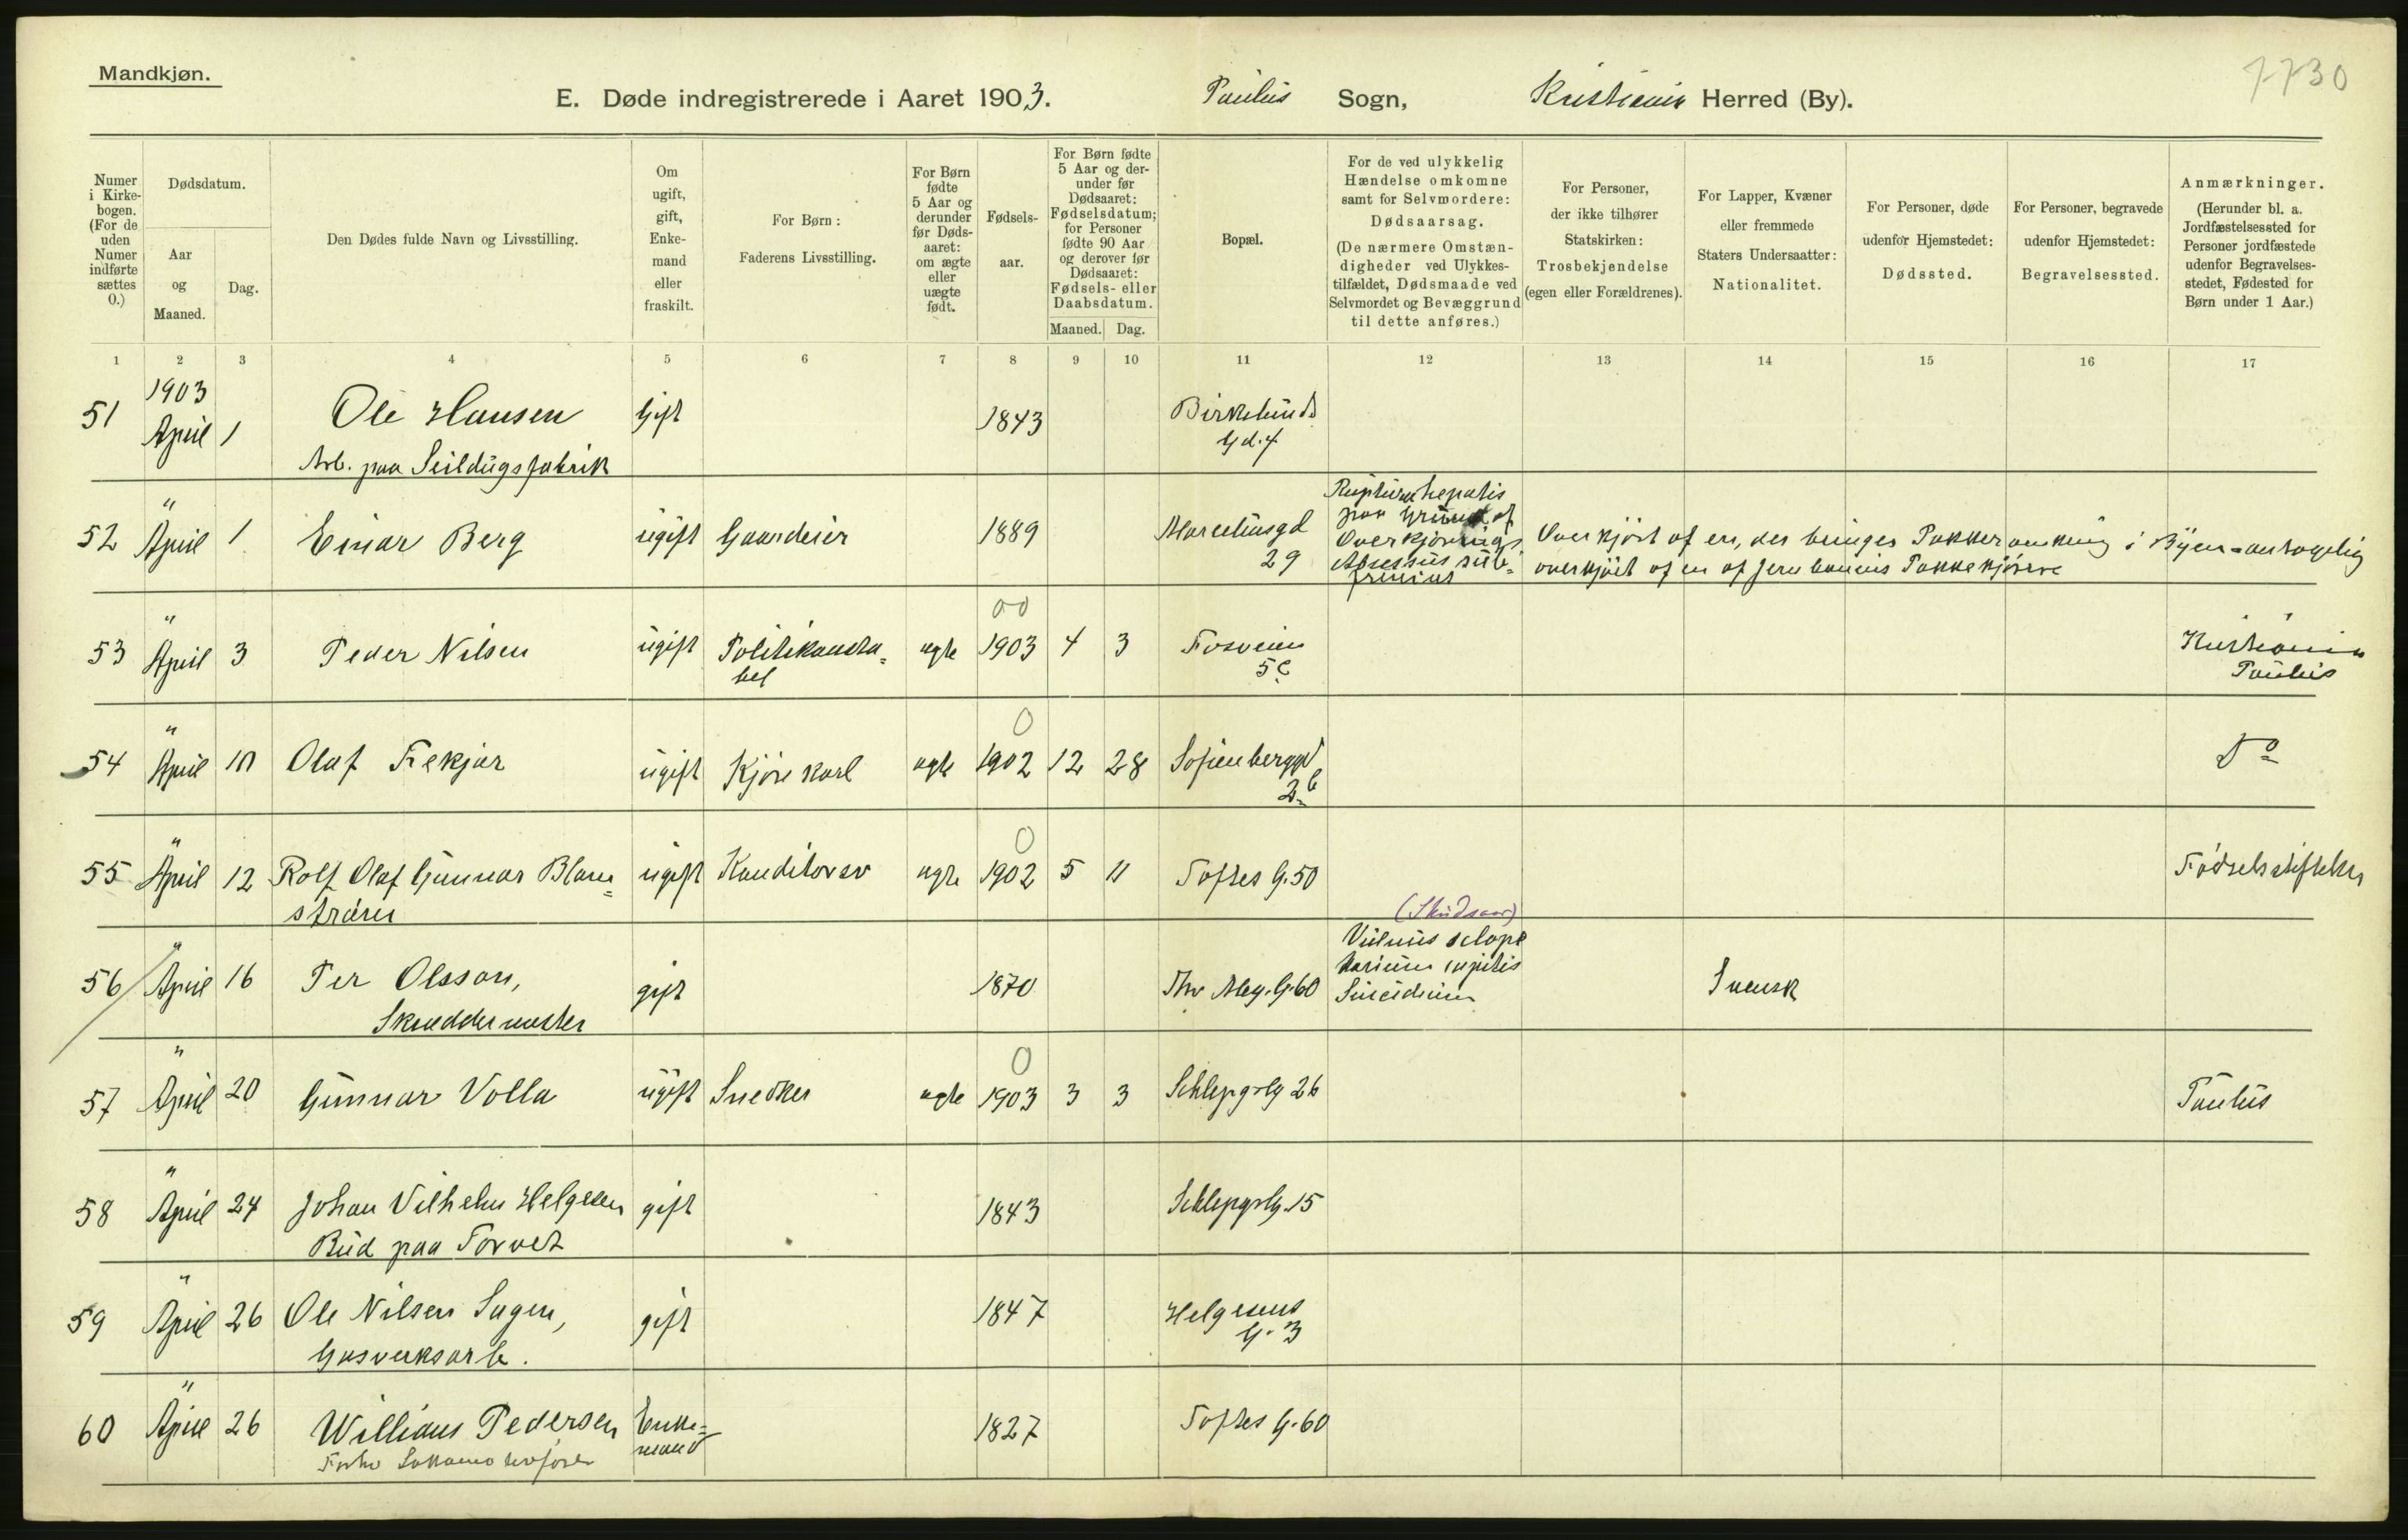 Mandkjøn.
7730
E. Døde indregistrerede i Aaret 1903. Paulus Sogn, Kristiania Herred (By).
Numer i Kirkebogen. (For de uden Numer indførte sættes 0.)
Dødsdatum.
Aar og Maaned.
Dag.
Den Dødes fulde Navn og Livsstilling.
Om ugift, gift, Enkemand eller fraskilt.
For Børn: Faderens Livsstilling.
For Børn fødte 5 Aar og derunder før Dødsaaret: om ægte eller uægte født.
Fødselsaar.
For Børn fødte 5 Aar og derunder før Dødsaaret: Fødselsdatum; for Personer fødte 90 Aar og derover før Dødsaaret: Fødsels- eller Daabsdatum.
Maaned. Dag.
Bopæl.
For de ved ulykkelig Hændelse omkomne samt for Selvmordere: Dødsaarsag. (De nærmere Omstændigheder ved Ulykkestilfældet, Dødsmaade ved Selvmordet og Bevæggrund til dette anføres.)
For Personer, der ikke tilhører Statskirken: Trosbekjendelse (egen eller Forældrenes).
For Lapper, Kvæner eller fremmede Staters Undersaatter: Nationalitet.
For Personer, døde udenfor Hjemstedet: Dødssted.
For Personer, begravede udenfor Hjemstedet: Begravelsessted.
Anmærkninger. (Herunder bl. a. Jordfæstelsessted for Personer jordfæstede udenfor Begravelsesstedet, Fødested for Børn under 1 Aar.)
1 2 3 4 5 6 7 8 9 10 11 12 13 14 15 16 17
1903
51 April 1 Ole Hansen Gift 1843 Birkelunds
Gd. 4
Arb. paa Seildugsfabrik
52 " April 1 Einar Berg ugift Gaardeier 1889 Marceliusgd
29
Ruptura hepatis
paa Grund af
Overkjørings
Absessus sub=
frenicus
Overkjørt af en, der bringer Pakker omkring i Byen - antagelig
overkjørt af en af Jernbanens Pakkekjørere
53 " April 3 Peder Nilsen ugift Politikonsta=
bel
ægte 00 1903 4 3 Fosveien
5c
Kristiania
Paulus
54 " April 10 Olaf Fekjær ugift Kjørekarl ægte 0 1902 12 28 Sofienberggd
2b
Do
55 " April 12 Rolf Olaf Gunnar Blom=
strøm
ugift Konditorsv ægte 0 1902 5 11 Toftes G. 50 Fødselsstiftelsen
56 " April 16 Per Olsson,
Skræddermester
gift 1870 Thv Mey. G. 60
(Skudsaar)
Vulnus sclope
tarium capitis
Suicidium
Svensk
57 " April 20 Gunnar Volla ugift Snedker ægte 0 1903 3 3 Schleppgrlg 26 Paulus
58 " April 24 Johan Vilhelm Helgesen
Bud paa Torvet
gift 1843 Schleppgrlg. 15
59 " April 26 Ole Nilsen Sagen,
Gasverksarb.
gift 1847 Helgesens
G. 3
60 " April 26 William Pedersen
Forhv Lokomotivfører
Enke=
mand
1827 Toftes G. 60